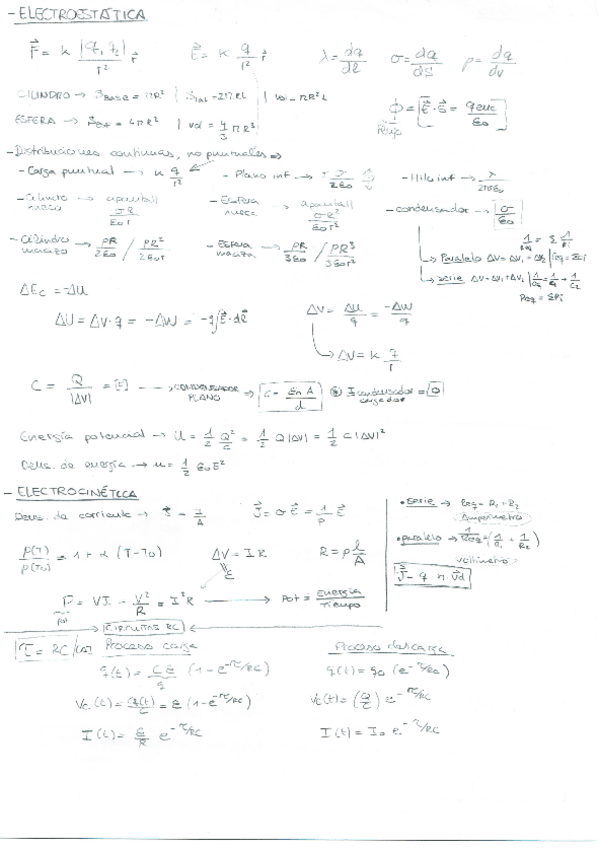 - ELECTROESTÁTICA
F⃗ = k |q₁ q₂| / r² r⃗   E⃗ = k q / r² r⃗   λ = dq/dl   σ = dq/dS   ρ = dq/dv
CILINDRO → S_BASE = πR² | S_lat = 2πRL | Vol = πR²L   ϕ = ∫E⃗·S⃗ = q enc / ε₀
ESFERA → = 4πR² | Vol = 4/3 πR³   Flujo
- Distribuciones continuas, no puntuales ⇒
- Carga puntual → k q/r²   - Plano inf → σ/2ε₀   - Hilo inf → λ/2πrε₀
- Cilindro hueco → σR/ε₀r   - Esfera hueca → σR²/ε₀r²   - condensador → σ/ε₀
- Cilindro macizo → ρR/2ε₀ / ρR²/2ε₀r   - Esfera maciza → ρR/3ε₀ / ρR³/3ε₀r²
Paralelo ΔV = ΔV₁ = ΔV₂ | Ceq = ΣCi
serie ΔV = ΔV₁ + ΔV₂ | 1/Ceq = 1/C₁ + 1/C₂
ΔEc = -ΔU
ΔU = ΔV·q = -ΔW = -q∫E⃗·dl⃗   ΔV = ΔU/q = -ΔW/q
ΔV = k q/r
C = Q/|ΔV| = [F] → CONDENSADOR PLANO → C = ε₀A/d   I condensador cargado = 0
Energía potencial → U = 1/2 Q²/C = 1/2 Q|ΔV| = 1/2 C|ΔV|²
Dens. de energía → u = 1/2 ε₀E²
- ELECTROCINÉTICA
Dens. de corriente → J = I/A   J⃗ = σE⃗ = 1/ρ E⃗
• serie → Req = R₁ + R₂
Amperímetro
• paralelo → 1/Req = (1/R₁ + 1/R₂)
voltímetro
J⃗ = q n v⃗d
ρ(T)/ρ(T₀) = 1 + α (T - T₀)   ΔV = IR   R = ρ l/A
ε
P = VI = V²/R = I²R → Pot = Energía/Tiempo
pot
CIRCUITOS RC
τ = RC   Proceso carga   Proceso descarga
q(t) = Cε (1 - e^-τ/RC)   q(t) = q₀ (e^-τ/RC)
Vc(t) = q(t)/C = ε (1 - e^-τ/RC)   Vc(t) = (Q/C) e^-τ/RC
I(t) = ε/R e^-τ/RC   I(t) = I₀ e^-τ/RC